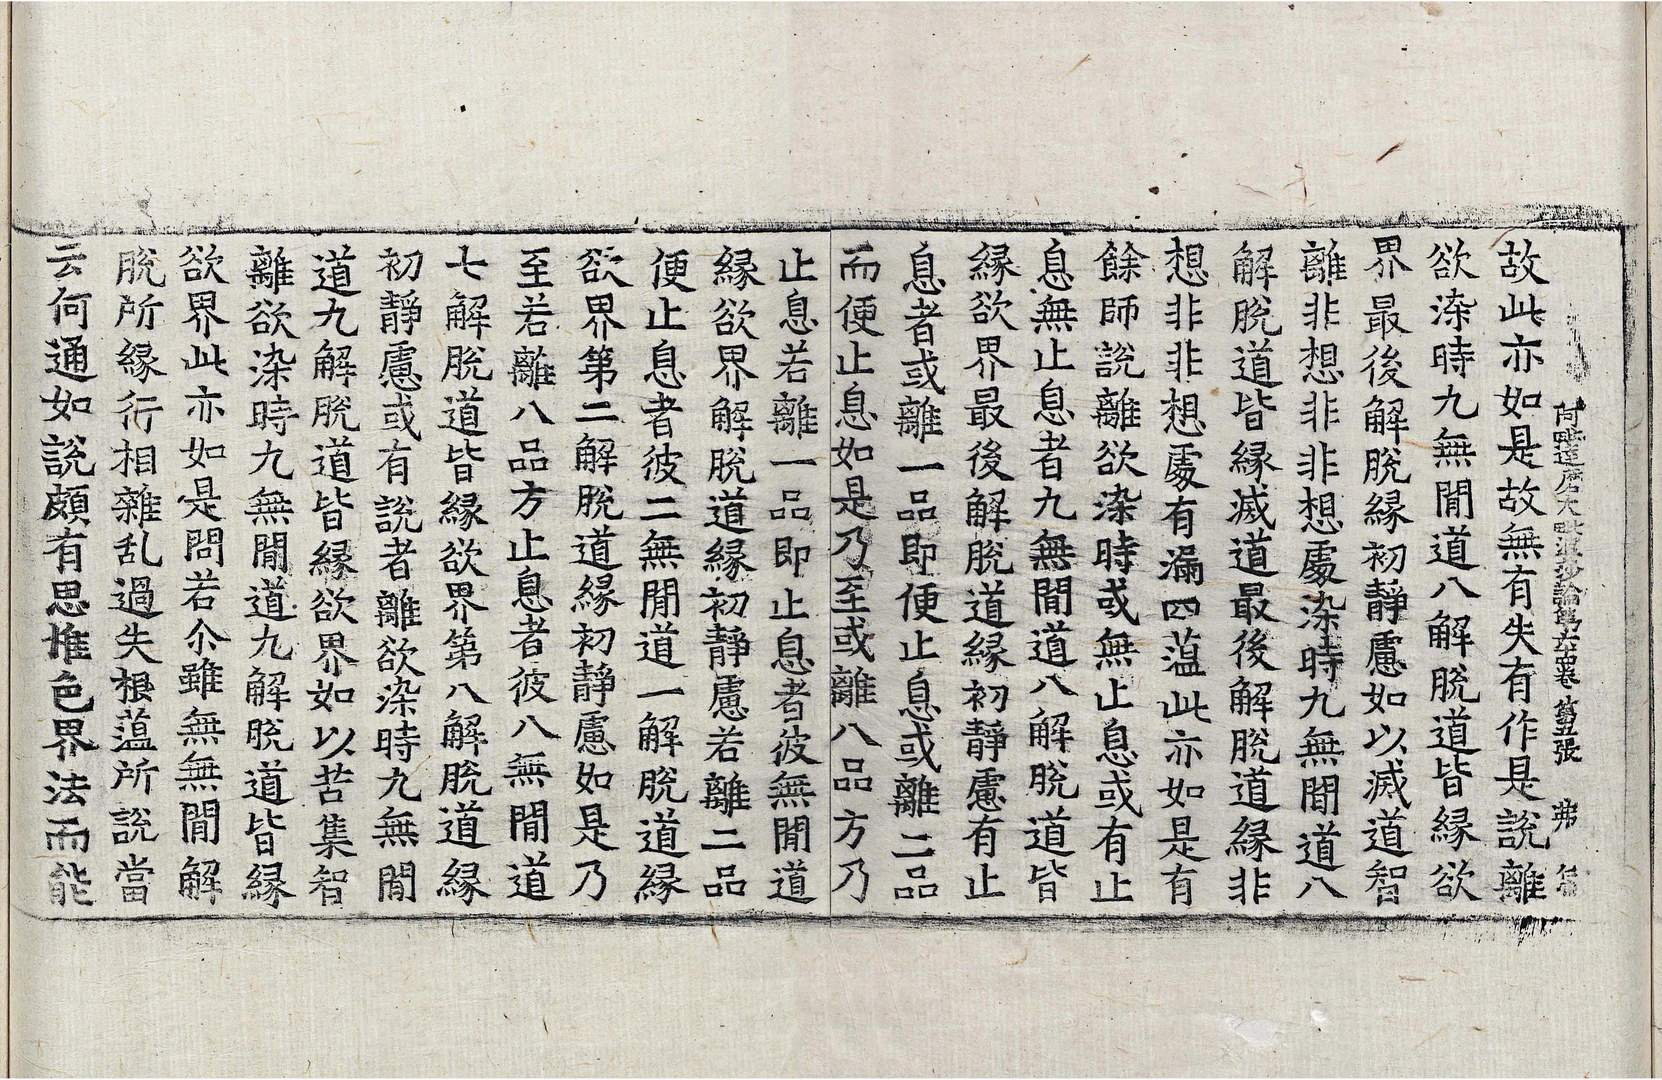 阿毗達磨大毗婆沙論第 卷 第五張 弗
故此亦如是故無有失有作是說離
欲染時九無閒道八解脫道皆緣欲
界最後解脫緣初靜慮如以滅道智
離非想非非想處染時九無閒道八
解脫道皆緣滅道最後解脫道緣非
想非非想處有漏四蕰此亦如是有
餘師說離欲染時或無止息或有止
息無止息者九無閒道八解脫道皆
緣欲界最後解脫道緣初靜慮有止
息者或離一品即便止息或離二品
而便止息如是乃至或離八品方乃
止息若離一品即止息者彼無閒道
緣欲界解脫道緣初靜慮若離二品
便止息者彼二無閒道一解脫道緣
欲界第二解脫道緣初靜慮如是乃
至若離八品方止息者彼八無閒道
七解脫道皆緣欲界第八解脫道緣
初靜慮或有說者離欲染時九無閒
道九解脫道皆緣欲界如以苦集智
離欲染時九無閒道九解脫道皆緣
欲界此亦如是問若尒雖無無閒解
脫所緣行相雜乱過失根蕰所說當
云何通如說頗有思惟色界法而能